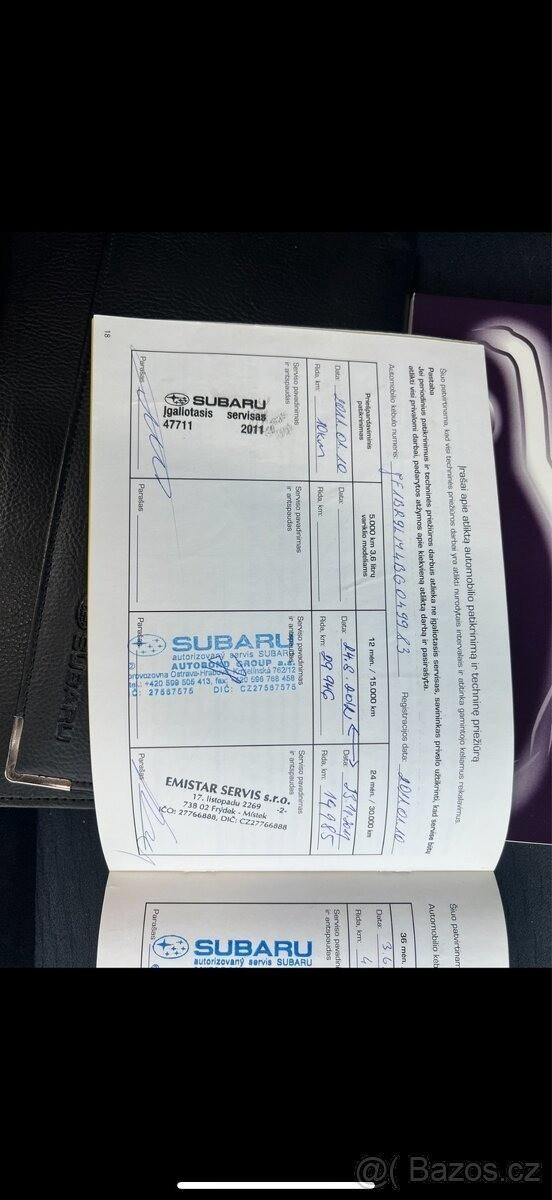 Įrašai apie atliktą automobilio patikrinimą ir techninę priežiūrą
Šiuo patvirtinama, kad visi techninės priežiūros darbai yra atlikti nurodytais intervalais ir atitinka gamintojo keliamus reikalavimus.
Pastaba
Jei periodinius patikrinimus ir techninės priežiūros darbus atlieka ne įgaliotasis servisas, savininkas privalo užtikrinti, kad servise būtų
atlikti visi privalomi darbai, padarytos atžymos apie kiekvieną atliktą darbą ir pasirašyta.
Automobilio kėbulo numeris: JF1BR9LY4BG049983 Registracijos data: 2011.01.10
Priešpardaviminis
patikrinimas
Data: 2011.01.10
Rida, km: 10km
Serviso pavadinimas
ir antspaudas
SUBARU
Įgaliotasis servisas
47711 2011
Parašas
5.000 km 3.6 litrų
variklio modeliams
Data:
Rida, km:
Serviso pavadinimas
ir antspaudas
Parašas
12 mėn. / 15.000 km
Data: 24.5.2012
Rida, km: 29.946
Serviso pavadinimas
ir antspaudas
SUBARU
autorizovaný servis SUBARU
AUTOBOND GROUP a.s.
provozovna Ostrava-Hrabová 762/12
tel.: +420 599 506 413, fax: +420 596 768 458
IČO: 27587575 DIČ: CZ27587575
Parašas
24 mėn. / 30.000 km
Data:
Rida, km: 19,985
Serviso pavadinimas
ir antspaudas
EMISTAR SERVIS s.r.o.
17. listopadu 2269 -2-
738 02 Frýdek - Místek
IČO: 27766888, DIČ: CZ27766888
Parašas
18
Šiuo patvirtinam
Automobilio kėb
36 mėn.
Data: 3.6
Rida, km: 4
Serviso pavadin
ir antspaudas
SUBARU
autorizovaný servis SUBARU
Parašas
SUBARU
@( Bazos.cz